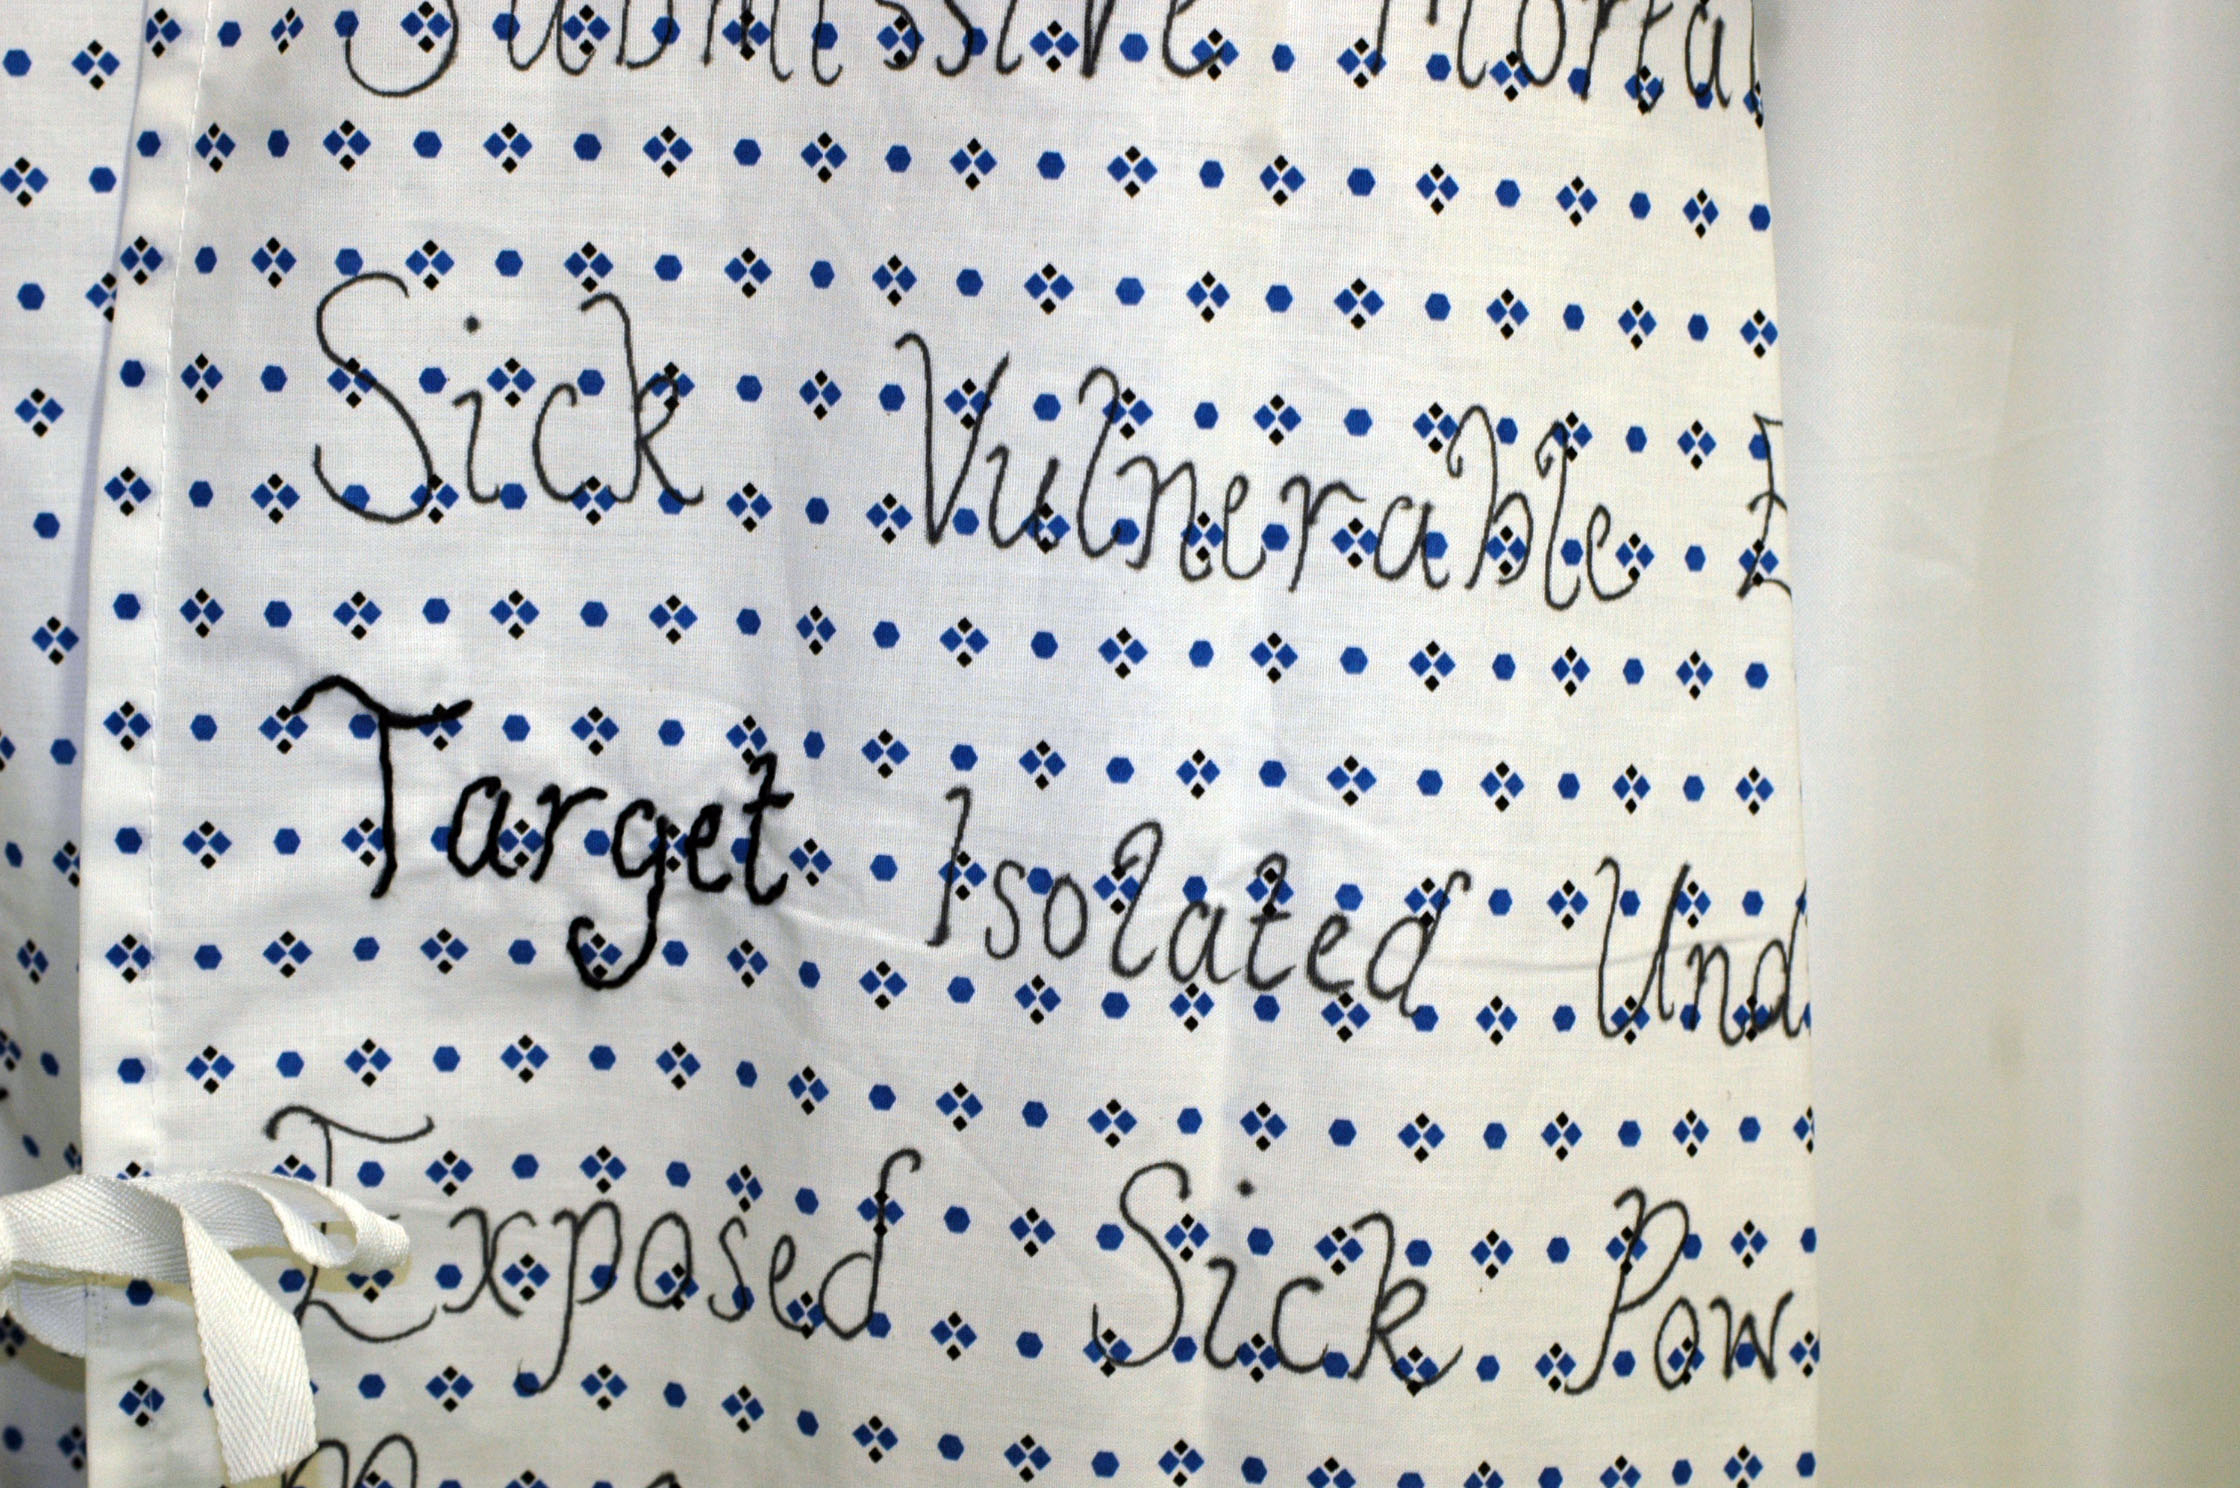 Submissive Mortal
Sick Vulnerable E
Target Isolated Und
Exposed Sick Pow